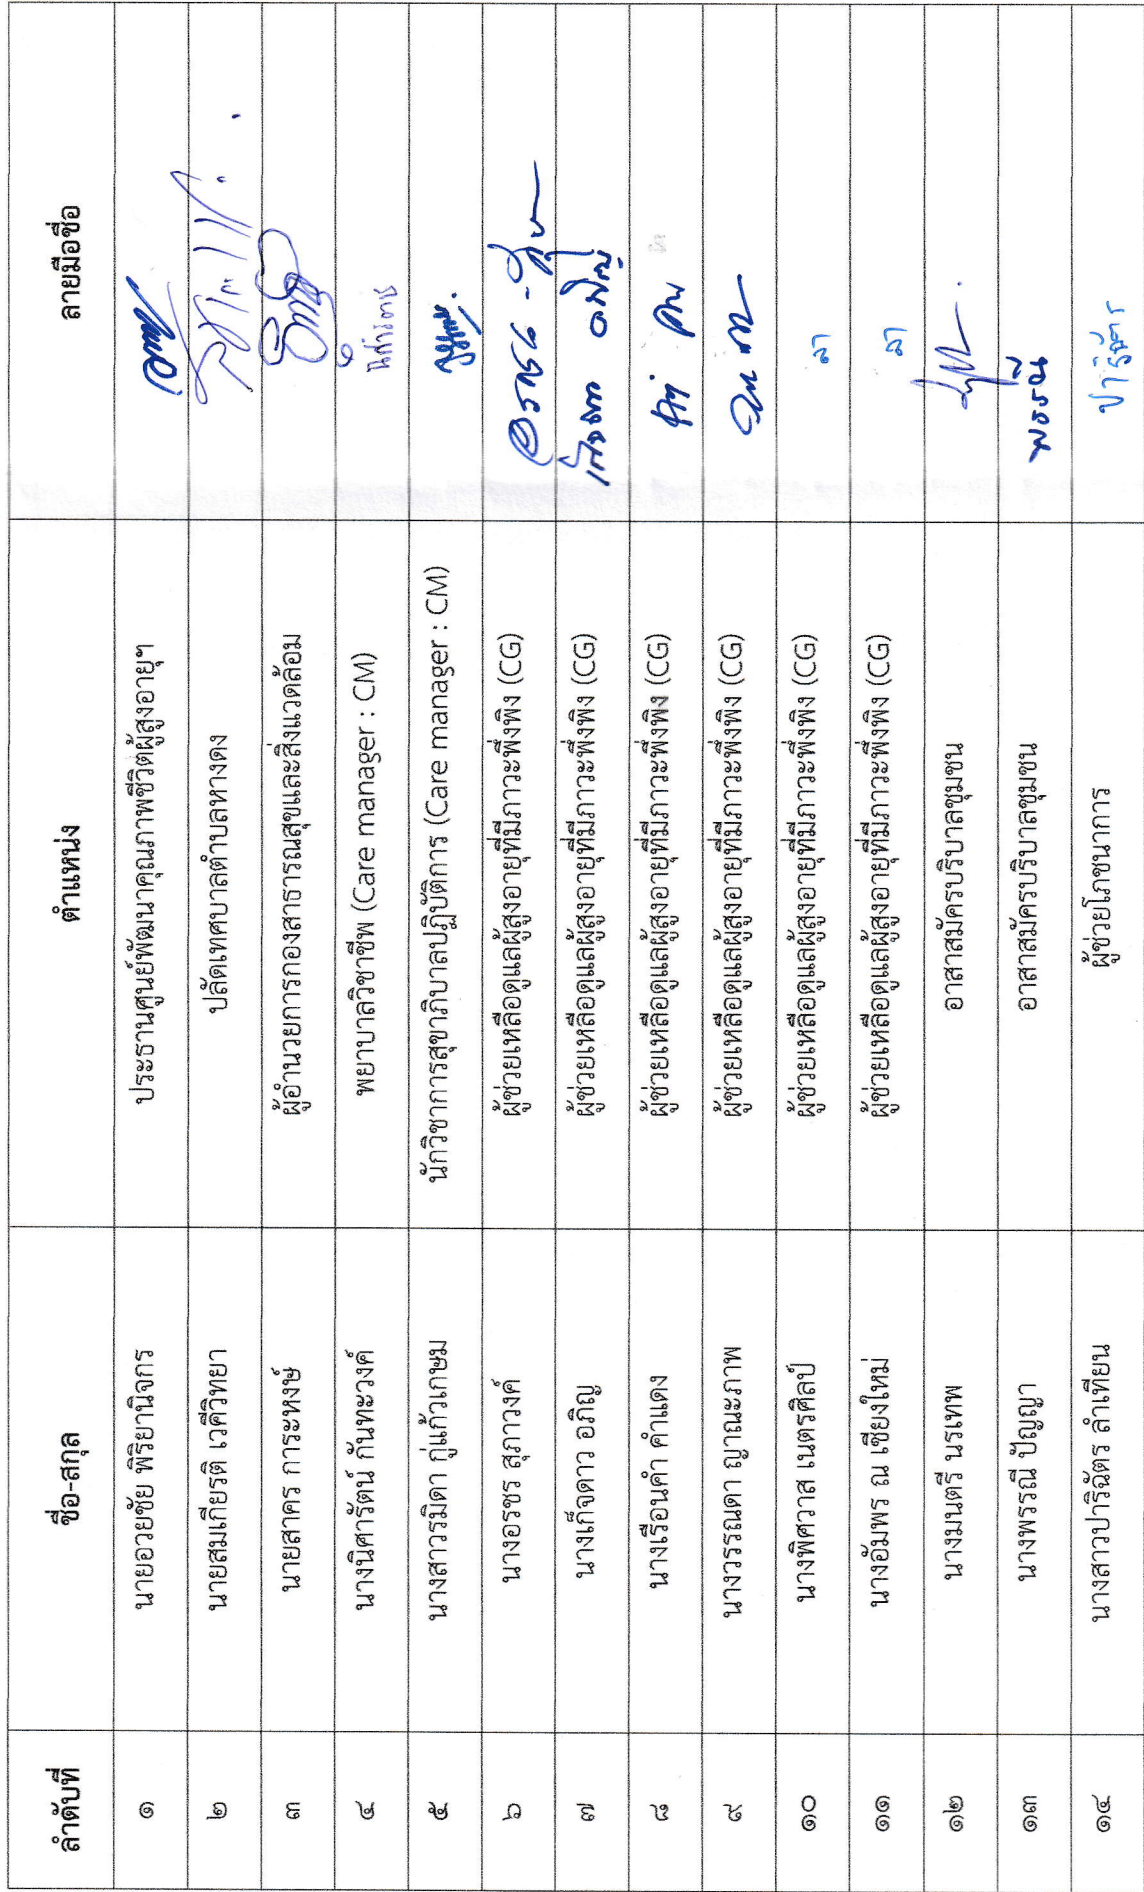 ลำดับที่ ชื่อ-สกุล ตำแหน่ง ลายมือชื่อ
๑ นายอวยชัย พิริยานิจกร ประธานศูนย์พัฒนาคุณภาพชีวิตผู้สูงอายุฯ
๒ นายสมเกียรติ เวคีวิทยา ปลัดเทศบาลตำบลหางดง
๓ นายสาคร การะหงษ์ ผู้อำนวยการกองสาธารณสุขและสิ่งแวดล้อม
๔ นางนิศารัตน์ กันทะวงค์ พยาบาลวิชาชีพ (Care manager : CM)
๕ นางสาวรมิดา กู่แก้วเกษม นักวิชาการสุขาภิบาลปฏิบัติการ (Care manager : CM)
๖ นางอรชร สุภาวงค์ ผู้ช่วยเหลือดูแลผู้สูงอายุที่มีภาวะพึ่งพิง (CG)
๗ นางเก็จดาว อภิญ ผู้ช่วยเหลือดูแลผู้สูงอายุที่มีภาวะพึ่งพิง (CG)
๘ นางเรือนคำ คำแดง ผู้ช่วยเหลือดูแลผู้สูงอายุที่มีภาวะพึ่งพิง (CG)
๙ นางวรรณดา ญาณะภาพ ผู้ช่วยเหลือดูแลผู้สูงอายุที่มีภาวะพึ่งพิง (CG)
๑๐ นางพิศวาส เนตรศิลป์ ผู้ช่วยเหลือดูแลผู้สูงอายุที่มีภาวะพึ่งพิง (CG) ลา
๑๑ นางอัมพร ณ เชียงใหม่ ผู้ช่วยเหลือดูแลผู้สูงอายุที่มีภาวะพึ่งพิง (CG) ลา
๑๒ นางมนตรี นรเทพ อาสาสมัครบริบาลชุมชน
๑๓ นางพรรณี ปัญญา อาสาสมัครบริบาลชุมชน พรรณี
๑๔ นางสาวปาริฉัตร ลำเทียน ผู้ช่วยโภชนาการ ปาริฉัตร